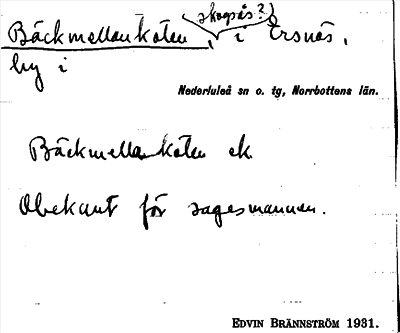 skogsås?)
Bäckmellankölen, i Ersnäs,
by i
Nederluleå sn o. tg, Norrbottens län.
Bäckmellankölen ek.
Obekant för sagesmannen.
EDVIN BRÄNNSTRÖM 1931.